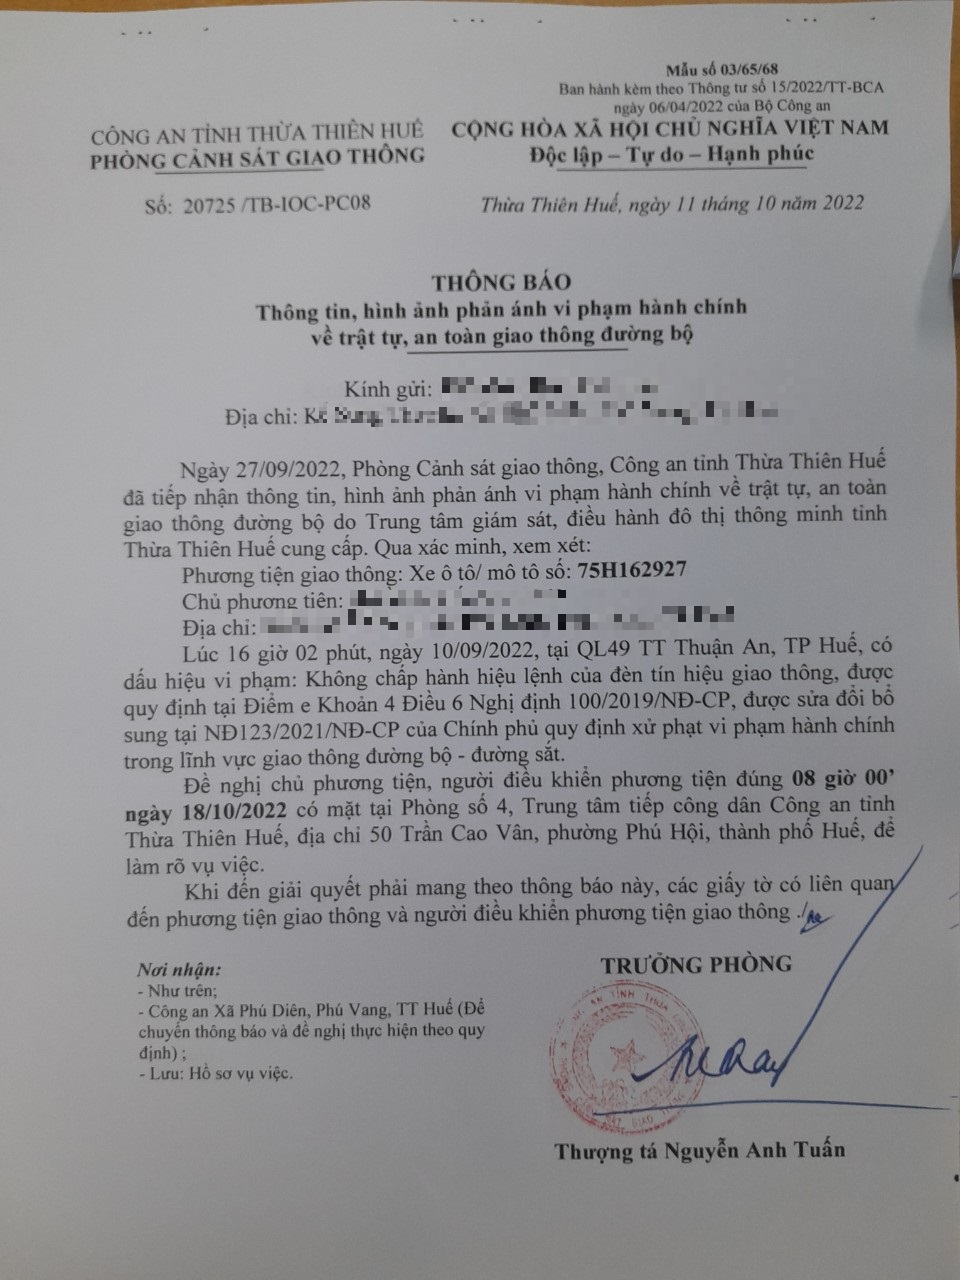 Mẫu số 03/65/68
Ban hành kèm theo Thông tư số 15/2022/TT-BCA
ngày 06/04/2022 của Bộ Công an
CÔNG AN TỈNH THỪA THIÊN HUẾ
PHÒNG CẢNH SÁT GIAO THÔNG
CỘNG HÒA XÃ HỘI CHỦ NGHĨA VIỆT NAM
Độc lập – Tự do – Hạnh phúc
Số: 20725 /TB-IOC-PC08
Thừa Thiên Huế, ngày 11 tháng 10 năm 2022
THÔNG BÁO
Thông tin, hình ảnh phản ánh vi phạm hành chính
về trật tự, an toàn giao thông đường bộ
Kính gửi:
Địa chỉ:
Ngày 27/09/2022, Phòng Cảnh sát giao thông, Công an tỉnh Thừa Thiên Huế
đã tiếp nhận thông tin, hình ảnh phản ánh vi phạm hành chính về trật tự, an toàn
giao thông đường bộ do Trung tâm giám sát, điều hành đô thị thông minh tỉnh
Thừa Thiên Huế cung cấp. Qua xác minh, xem xét:
Phương tiện giao thông: Xe ô tô/ mô tô số: 75H162927
Chủ phương tiện:
Địa chỉ:
Lúc 16 giờ 02 phút, ngày 10/09/2022, tại QL49 TT Thuận An, TP Huế, có
dấu hiệu vi phạm: Không chấp hành hiệu lệnh của đèn tín hiệu giao thông, được
quy định tại Điểm e Khoản 4 Điều 6 Nghị định 100/2019/NĐ-CP, được sửa đổi bổ
sung tại NĐ123/2021/NĐ-CP của Chính phủ quy định xử phạt vi phạm hành chính
trong lĩnh vực giao thông đường bộ - đường sắt.
Đề nghị chủ phương tiện, người điều khiển phương tiện đúng 08 giờ 00’
ngày 18/10/2022 có mặt tại Phòng số 4, Trung tâm tiếp công dân Công an tỉnh
Thừa Thiên Huế, địa chỉ 50 Trần Cao Vân, phường Phú Hội, thành phố Huế, để
làm rõ vụ việc.
Khi đến giải quyết phải mang theo thông báo này, các giấy tờ có liên quan
đến phương tiện giao thông và người điều khiển phương tiện giao thông ./
Nơi nhận:
- Như trên;
- Công an Xã Phú Diên, Phú Vang, TT Huế (Để
chuyển thông báo và đề nghị thực hiện theo quy
định) ;
- Lưu: Hồ sơ vụ việc.
TRƯỞNG PHÒNG
Thượng tá Nguyễn Anh Tuấn